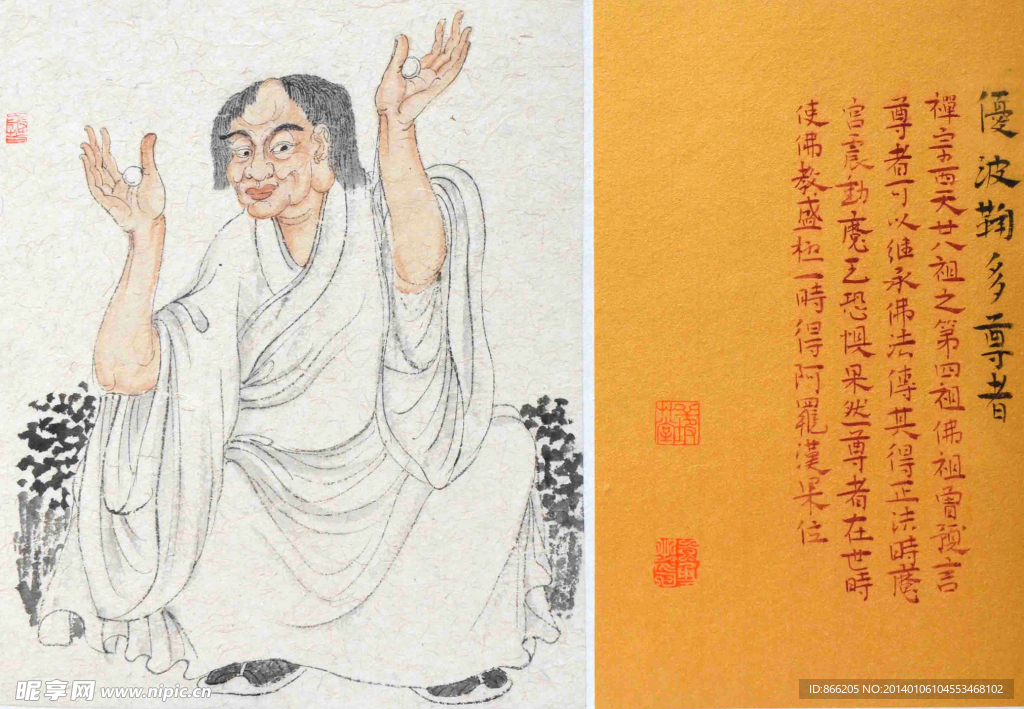 優波鞠多尊者
禪宗西天廿八祖之第四祖佛祖曾預言
尊者可以继承佛法傳其得正法時魔
宫震動魔王恐惧果然尊者在世時
使佛教盛極一時得阿羅漢果位
昵享网 www.nipic.cn
ID:866205 NO:20140106104553468102